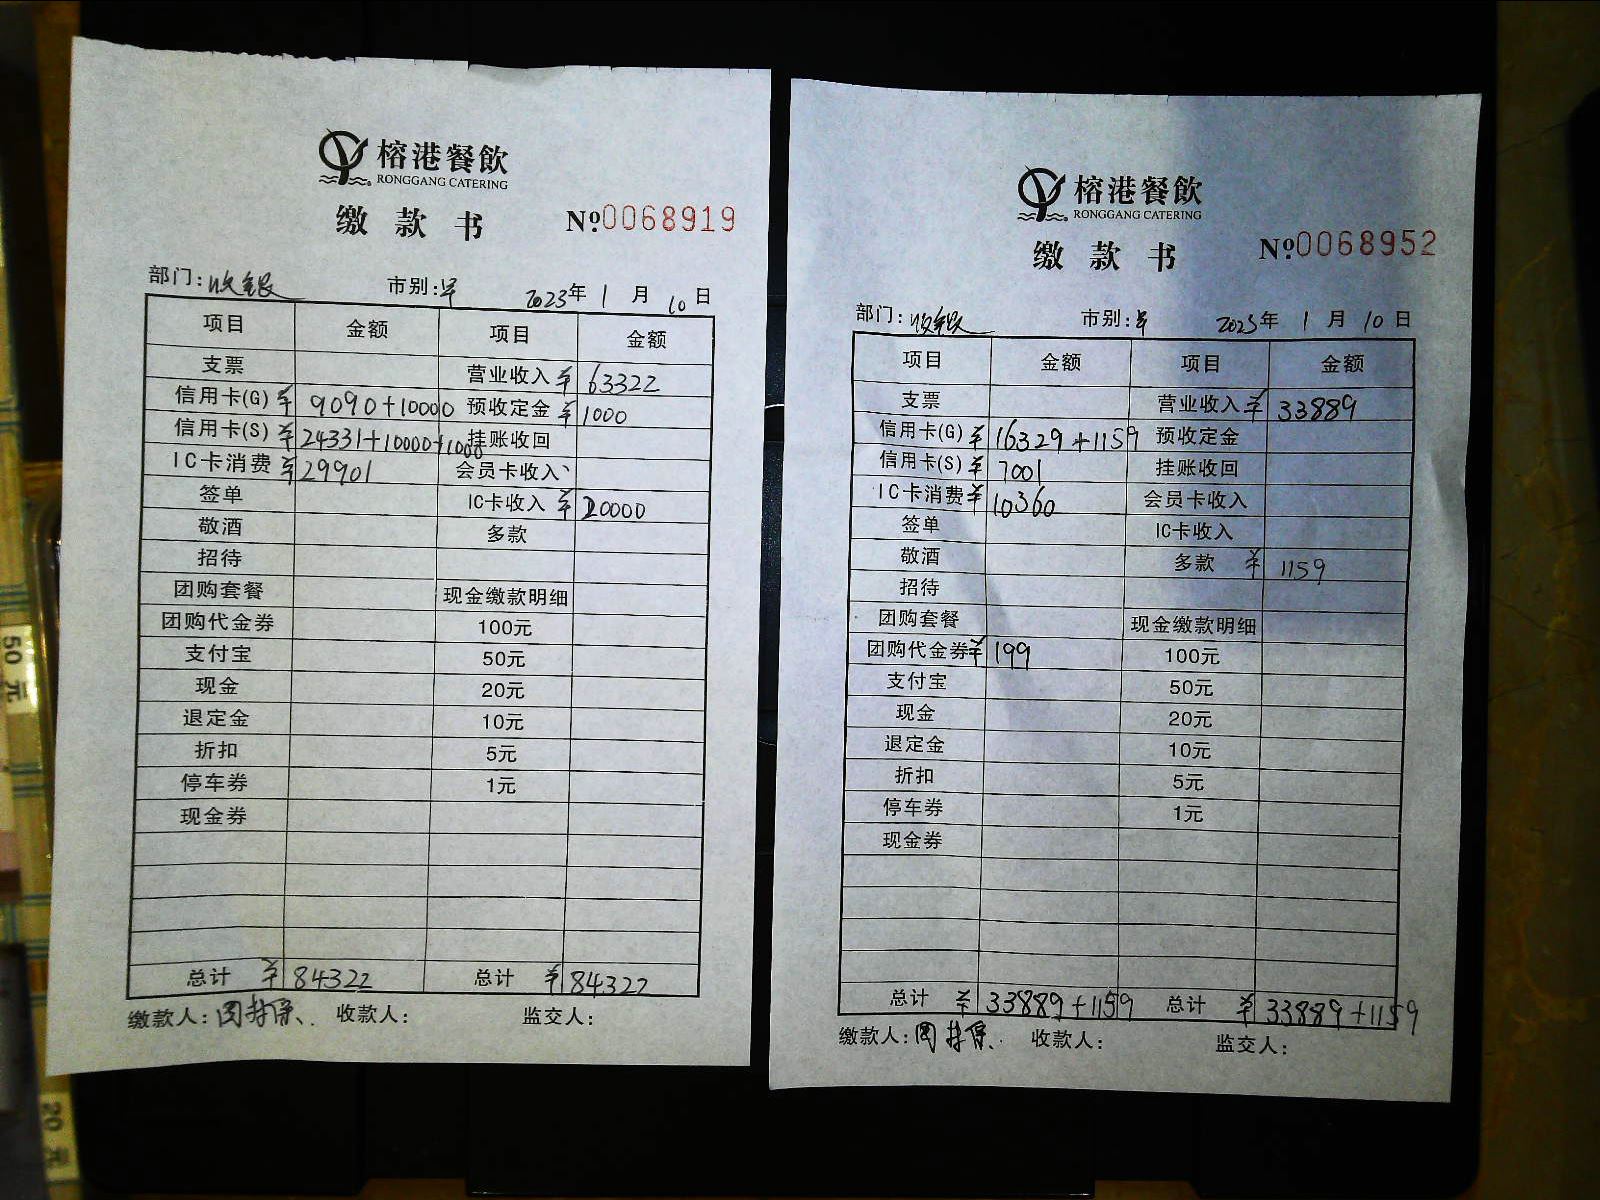 榕港餐飲
RONGGANG CATERING
缴款书 №0068919
部门:收银 市别:早 2023年1月10日
项目 金额 项目 金额
支票 营业收入 ¥63322
信用卡(G) ¥9090+10000 预收定金 ¥1000
信用卡(S) ¥24331+10000+1000 挂账收回
IC卡消费 ¥29901 会员卡收入
签单 IC卡收入 ¥20000
敬酒 多款
招待
团购套餐 现金缴款明细
团购代金券 100元
支付宝 50元
现金 20元
退定金 10元
折扣 5元
停车券 1元
现金券
总计 ¥84322 总计 ¥84322
缴款人: 收款人: 监交人:
榕港餐飲
RONGGANG CATERING
缴款书 №0068952
部门:收银 市别:早 2023年1月10日
项目 金额 项目 金额
支票 营业收入 ¥33889
信用卡(G) ¥16329+1159 预收定金
信用卡(S) ¥7001 挂账收回
IC卡消费 ¥10360 会员卡收入
签单 IC卡收入
敬酒 多款 ¥1159
招待
团购套餐 现金缴款明细
团购代金券 ¥199 100元
支付宝 50元
现金 20元
退定金 10元
折扣 5元
停车券 1元
现金券
总计 ¥33889+1159 总计 ¥33889+1159
缴款人: 收款人: 监交人:
50元
20元